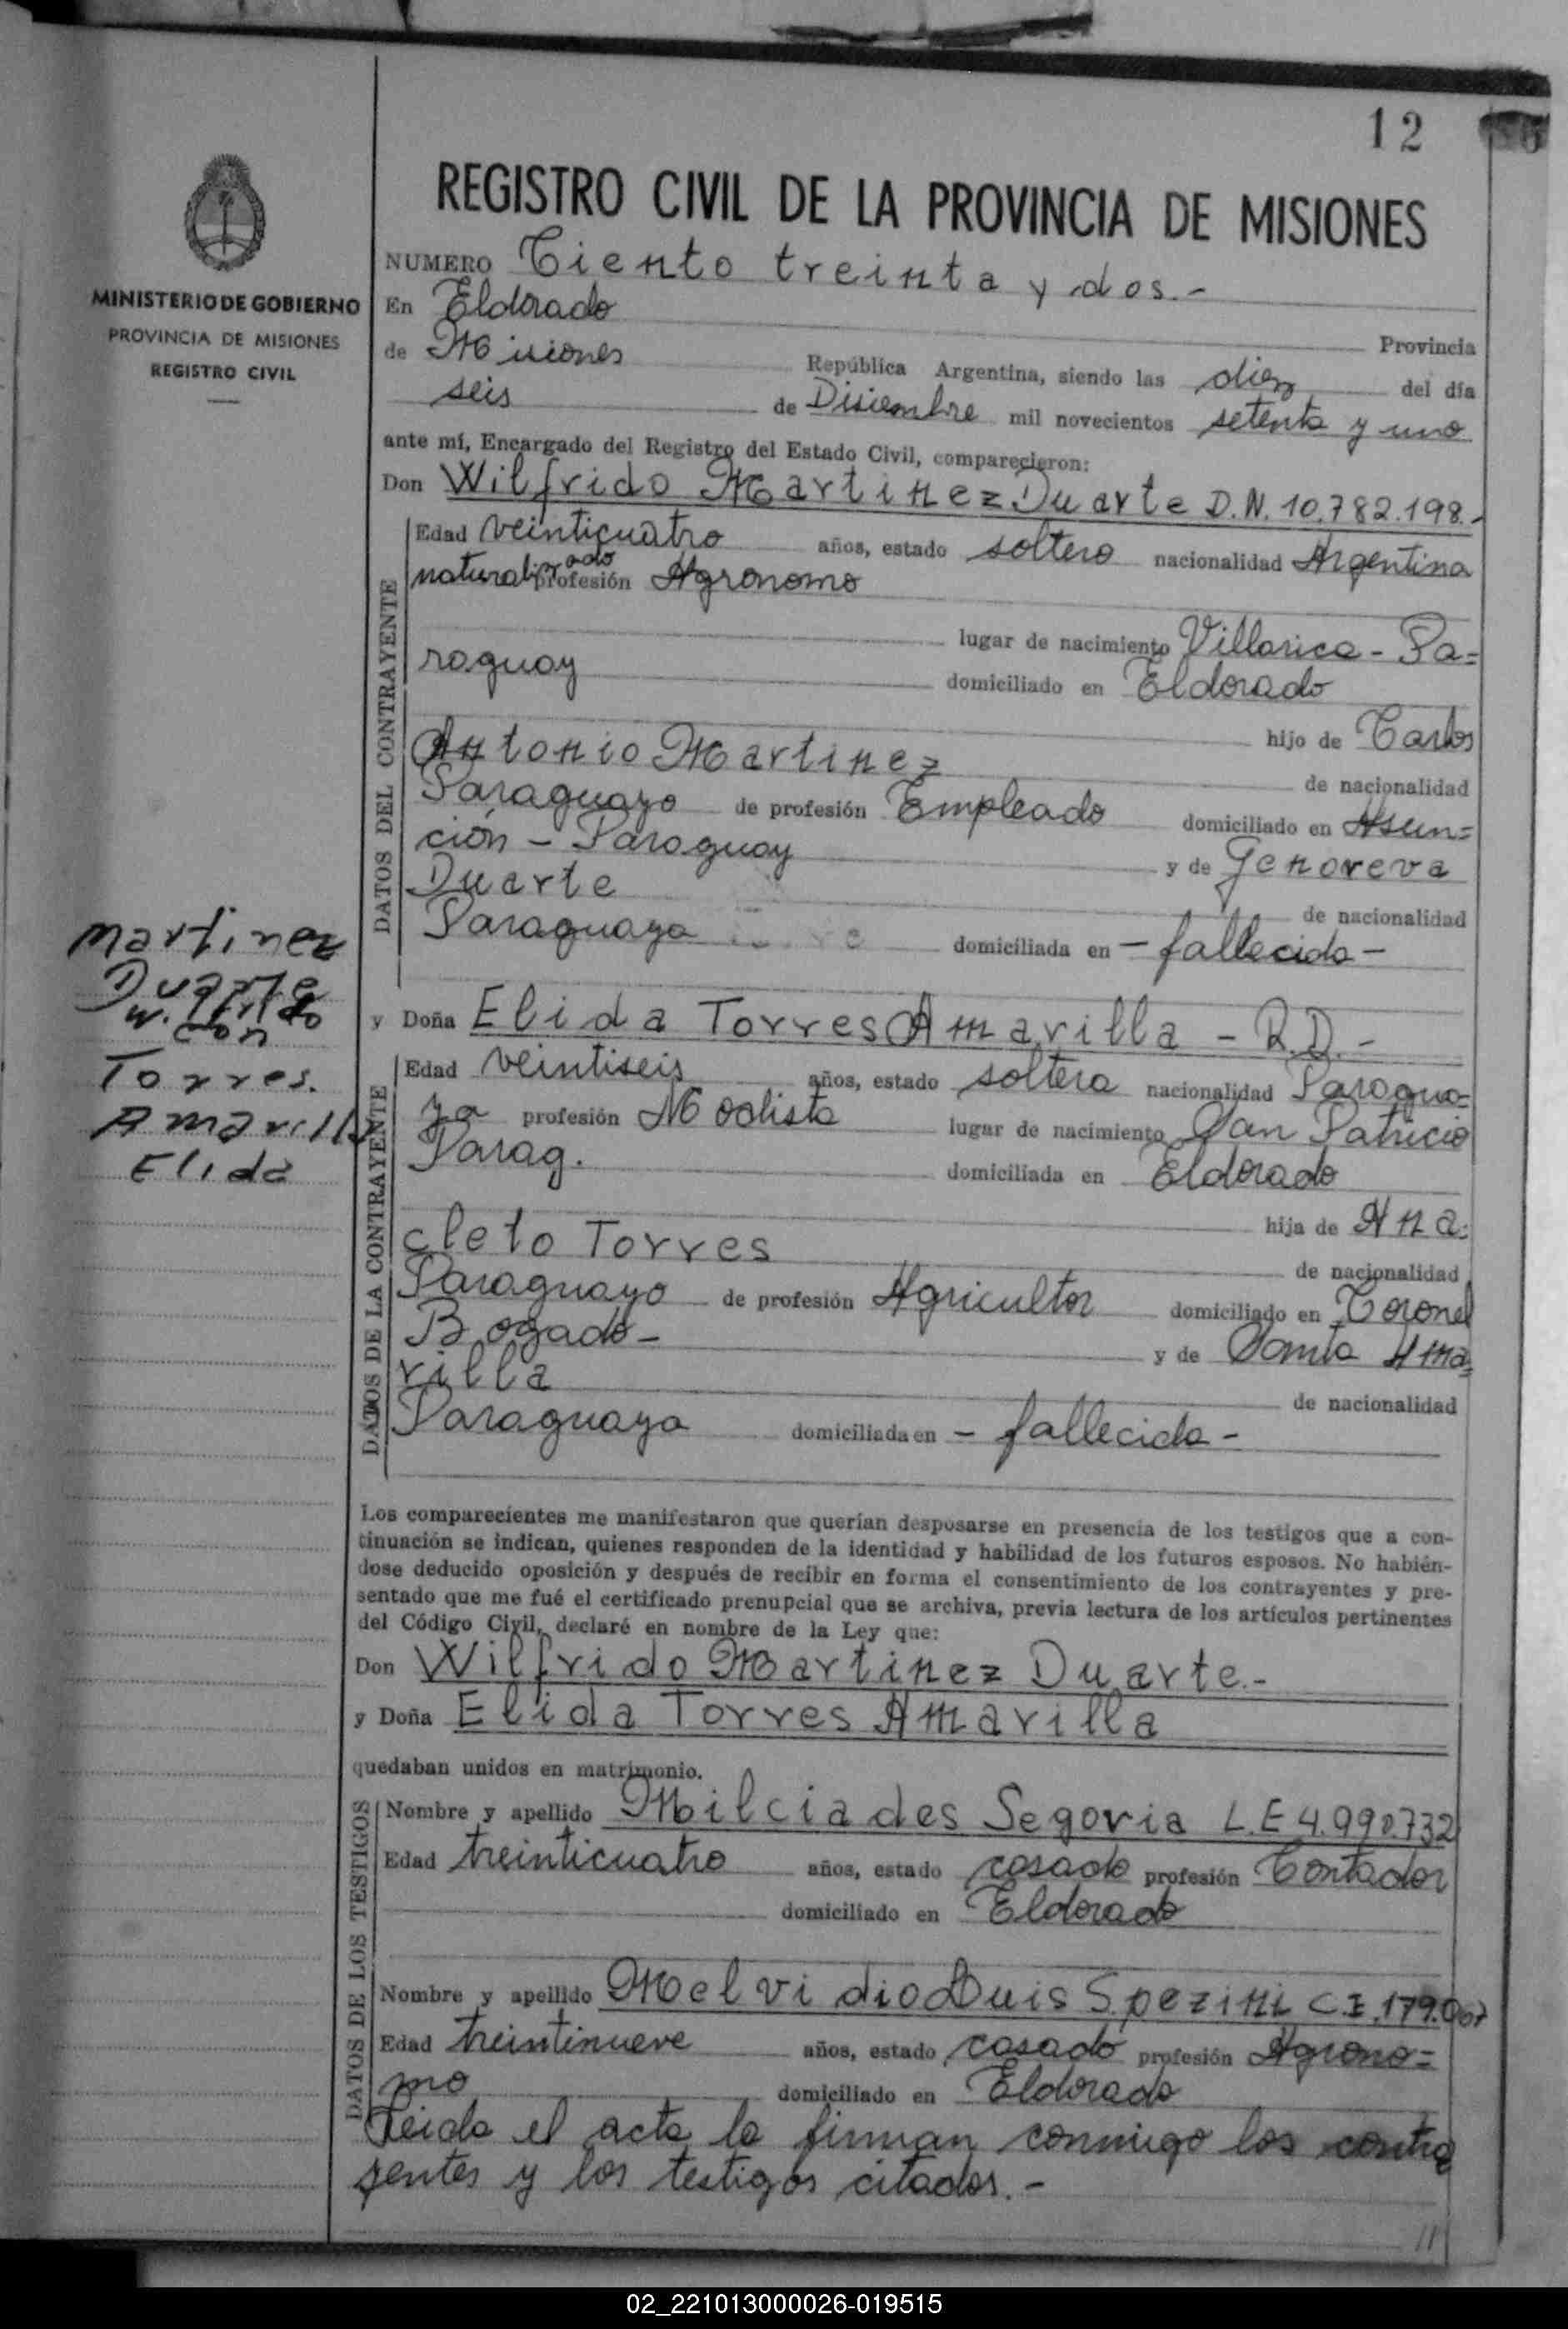 12
REGISTRO CIVIL DE LA PROVINCIA DE MISIONES
MINISTERIO DE GOBIERNO
PROVINCIA DE MISIONES
REGISTRO CIVIL
NUMERO Ciento treinta y dos.-
En Eldorado Provincia
de Misiones República Argentina, siendo las diez del día
seis de Disiembre mil novecientos setenta y uno
ante mí, Encargado del Registro del Estado Civil, comparecieron:
Don Wilfrido Martinez Duarte D.N. 10.782.198.-
DATOS DEL CONTRAYENTE
Edad veinticuatro años, estado soltero nacionalidad Argentina
naturalizado profesión Agronomo
lugar de nacimiento Villarica - Pa=
raguay domiciliado en Eldorado
hijo de Carlos
Antonio Martinez de nacionalidad
Paraguayo de profesión Empleado domiciliado en Asun=
ción - Paraguay y de Genoveva
Duarte de nacionalidad
Paraguaya domiciliada en - fallecida -
Martinez
Duarte
W. frido
con
Torres.
Amarilla
Elida
y Doña Elida Torres Amarilla - R.D.-
DATOS DE LA CONTRAYENTE
Edad veintiseis años, estado soltera nacionalidad Paragua=
ya profesión Modista lugar de nacimiento San Patricio
Parag. domiciliada en Eldorado
hija de Ana=
cleto Torres de nacionalidad
Paraguayo de profesión Agricultor domiciliado en Coronel
Bogado - y de Santa Ama=
rilla de nacionalidad
Paraguaya domiciliada en - fallecida -
Los comparecientes me manifestaron que querían desposarse en presencia de los testigos que a con-
tinuación se indican, quienes responden de la identidad y habilidad de los futuros esposos. No habién-
dose deducido oposición y después de recibir en forma el consentimiento de los contrayentes y pre-
sentado que me fué el certificado prenupcial que se archiva, previa lectura de los artículos pertinentes
del Código Civil, declaré en nombre de la Ley que:
Don Wilfrido Martinez Duarte.-
y Doña Elida Torres Amarilla
quedaban unidos en matrimonio.
DATOS DE LOS TESTIGOS
Nombre y apellido Milciades Segovia L.E
Edad treinticuatro años, estado casado profesión Contador
domiciliado en Eldorado
Nombre y apellido Melvidio Luis Spezini C.I. 179.067
Edad treintinueve años, estado casado profesión Agrono=
mo domiciliado en Eldorado
Leida el acta la firman conmigo los contra
yentes y los testigos citados.-
02_221013000026-019515